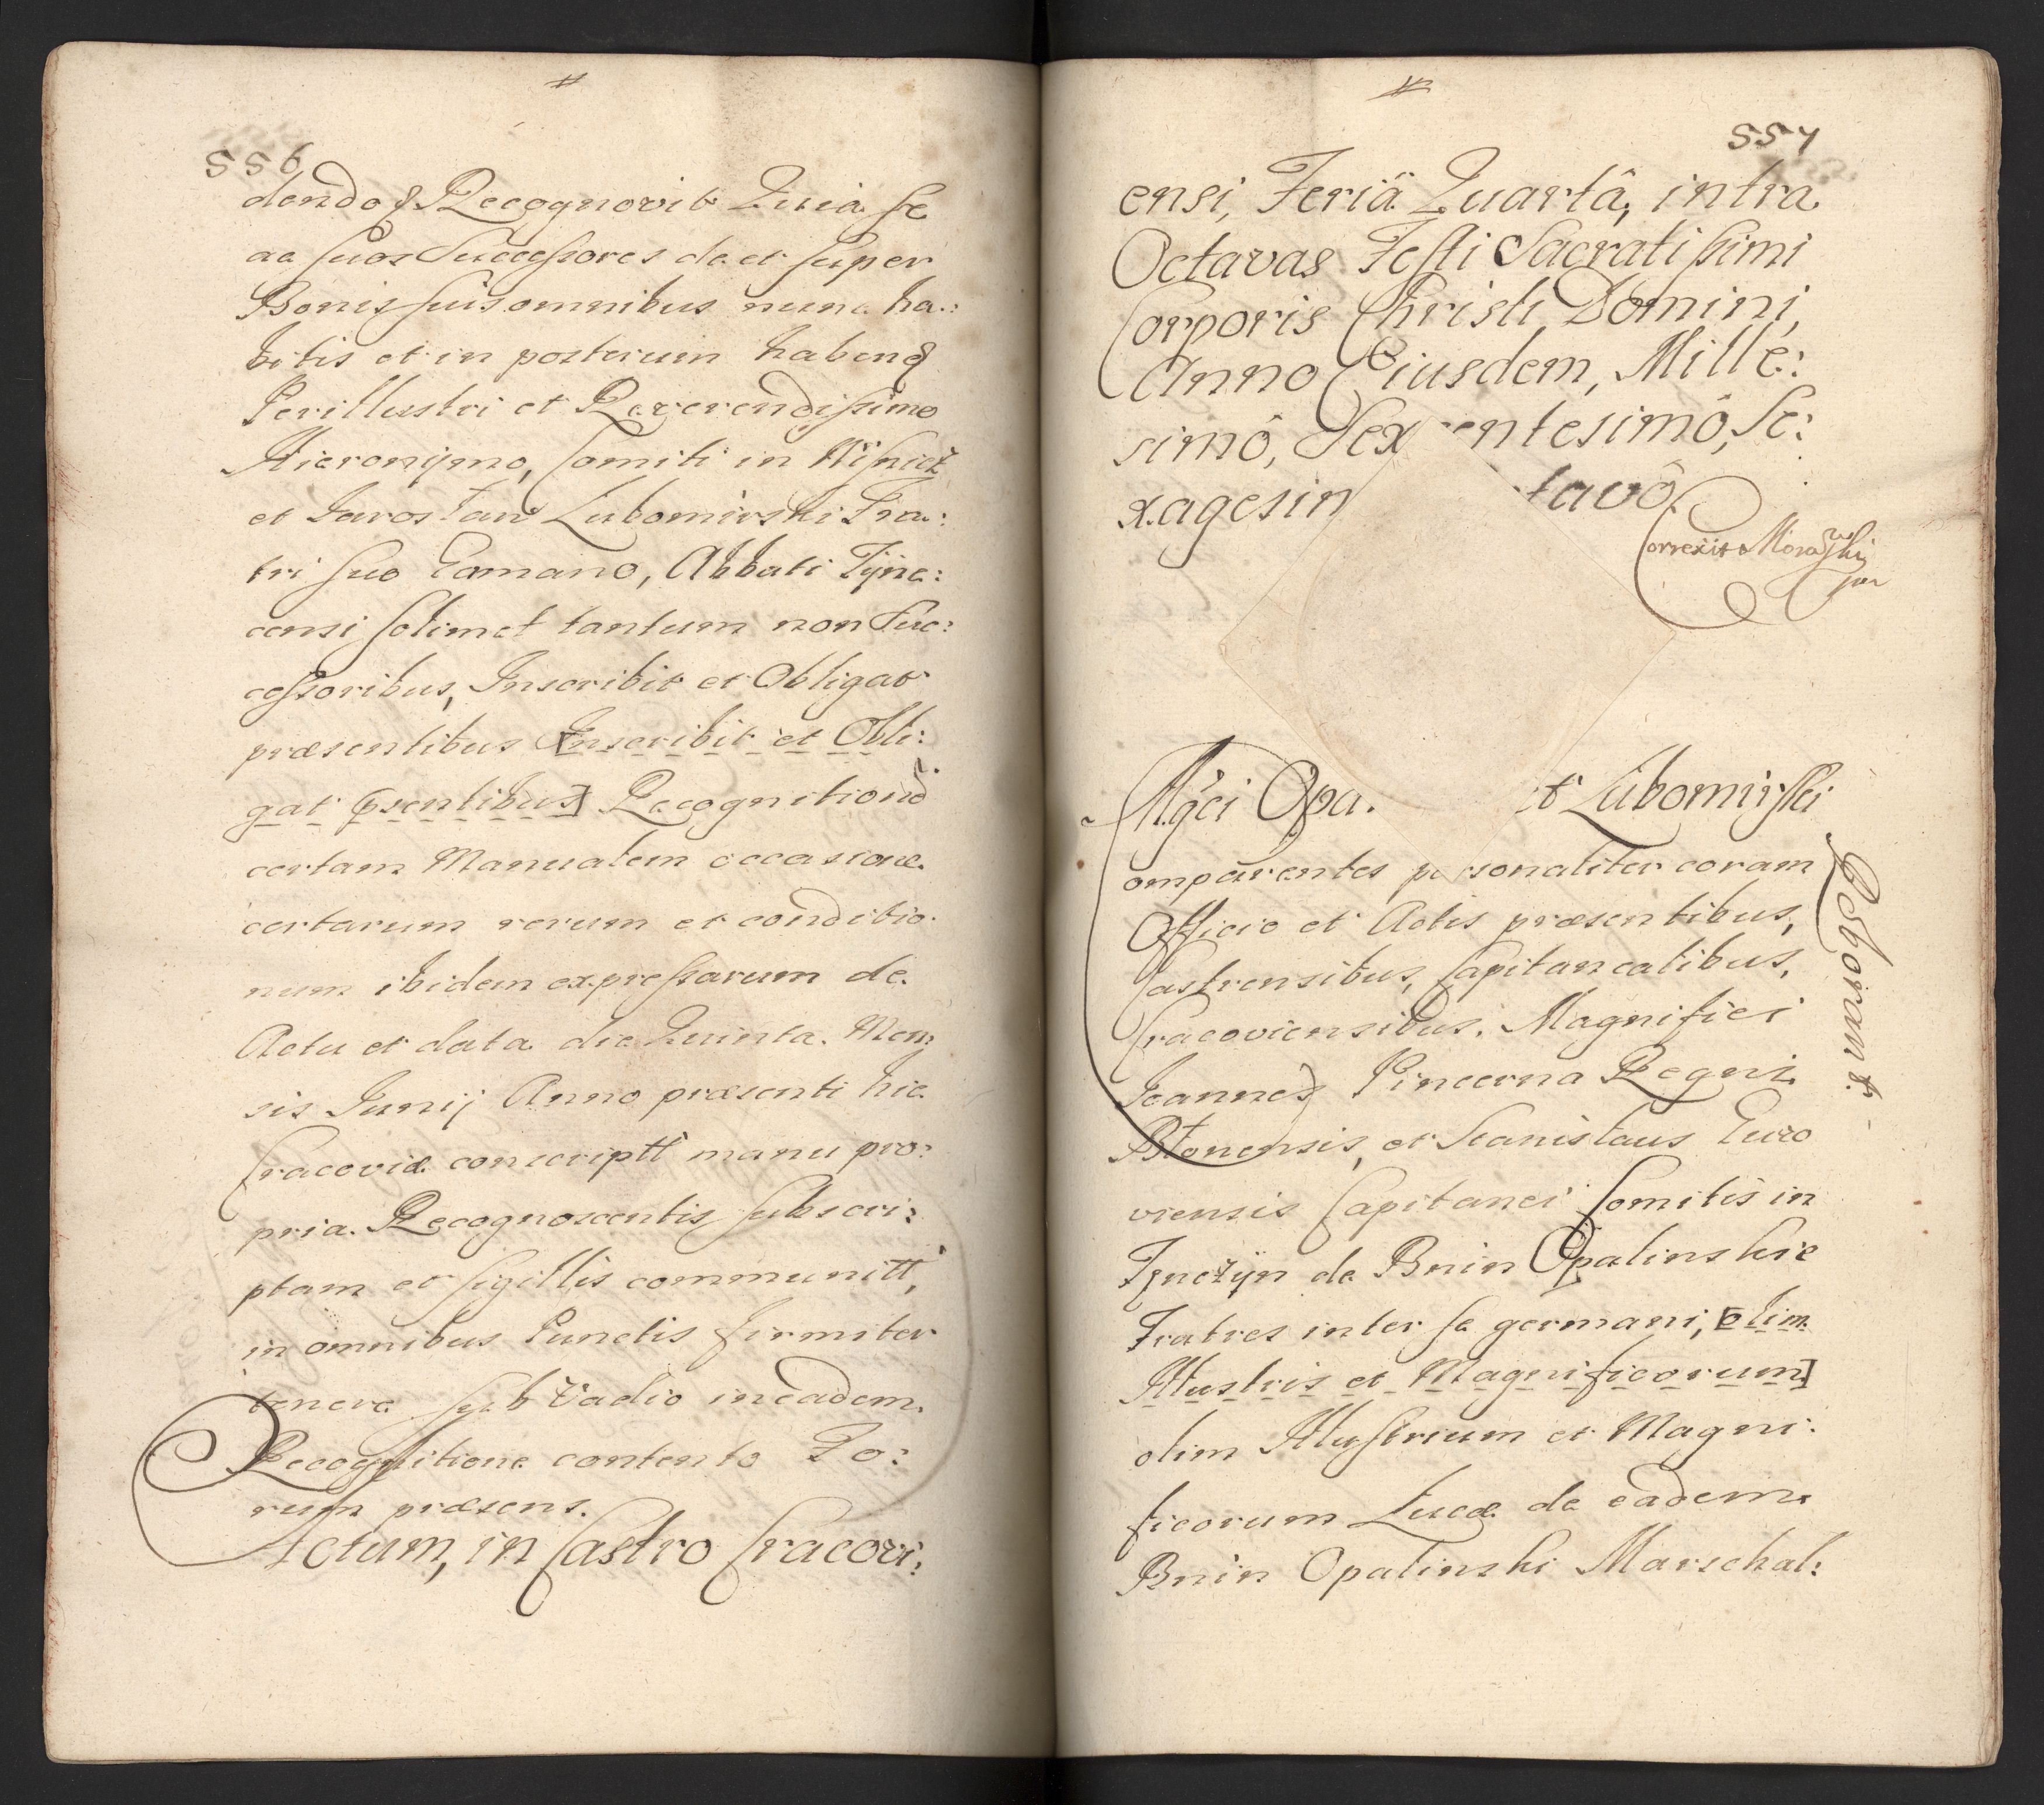 556
dendo Recognovit Quia se
ac suos Successores de et super
Bonis suis omnibus nunc ha:
bitis et in posterum habend
Perillustri et Reverendissimo
Hieronymo, Comiti in Wisnicz
et Jaroslaw Lubomirski Fra:
tri suo Germano, Abbati Tyne:
censi solimet tantum non Suc:
cessoribus, Inscribit et Obligat
præsentibus [Inscribit et Obli:
gat psentibus] Recognitiond
certam Manualem occasione
certarum rerum et conditio:
num ibidem expressarum de
Actu et data die Quinta Men:
sis Junij Anno præsenti hic
Cracoviæ conscriptt manu pro:
pria Recognoscentis subscri:
ptam et sigillis communitt,
in omnibus Punctis firmiter
tenere sub Vadio in eadem
Recognitione contento Fo:
rum præsens.
Actum, in Castro Cracovi:
557
ensi, Feriâ Quartâ, intra
Octavas Festi Sacratissimi
Corporis Christi Domini,
Anno Eiusdem, Mille:
simô, Sexcentesimô, Se:
xagesim tavô
Correxit Morawski
mr
Mgci Opa. et Lubomirski
omparentes personaliter coram
Officio et Actis præsentibus,
Castrensibus, Capitanealibus,
Cracoviensibus. Magnifici
Joannes Pincerna Regni
Btonensis, et Stanislaus Guzo
viensis Capitanei Comitis in
Tęnczyn de Bnin Opalinskie
Fratres inter se germani, [olim
Illustris et Magnificorum]
olim Illustrium et Magni:
ficorum Lucæ de eadem
Bnin Opalinski Marschal:
Roboraõn: